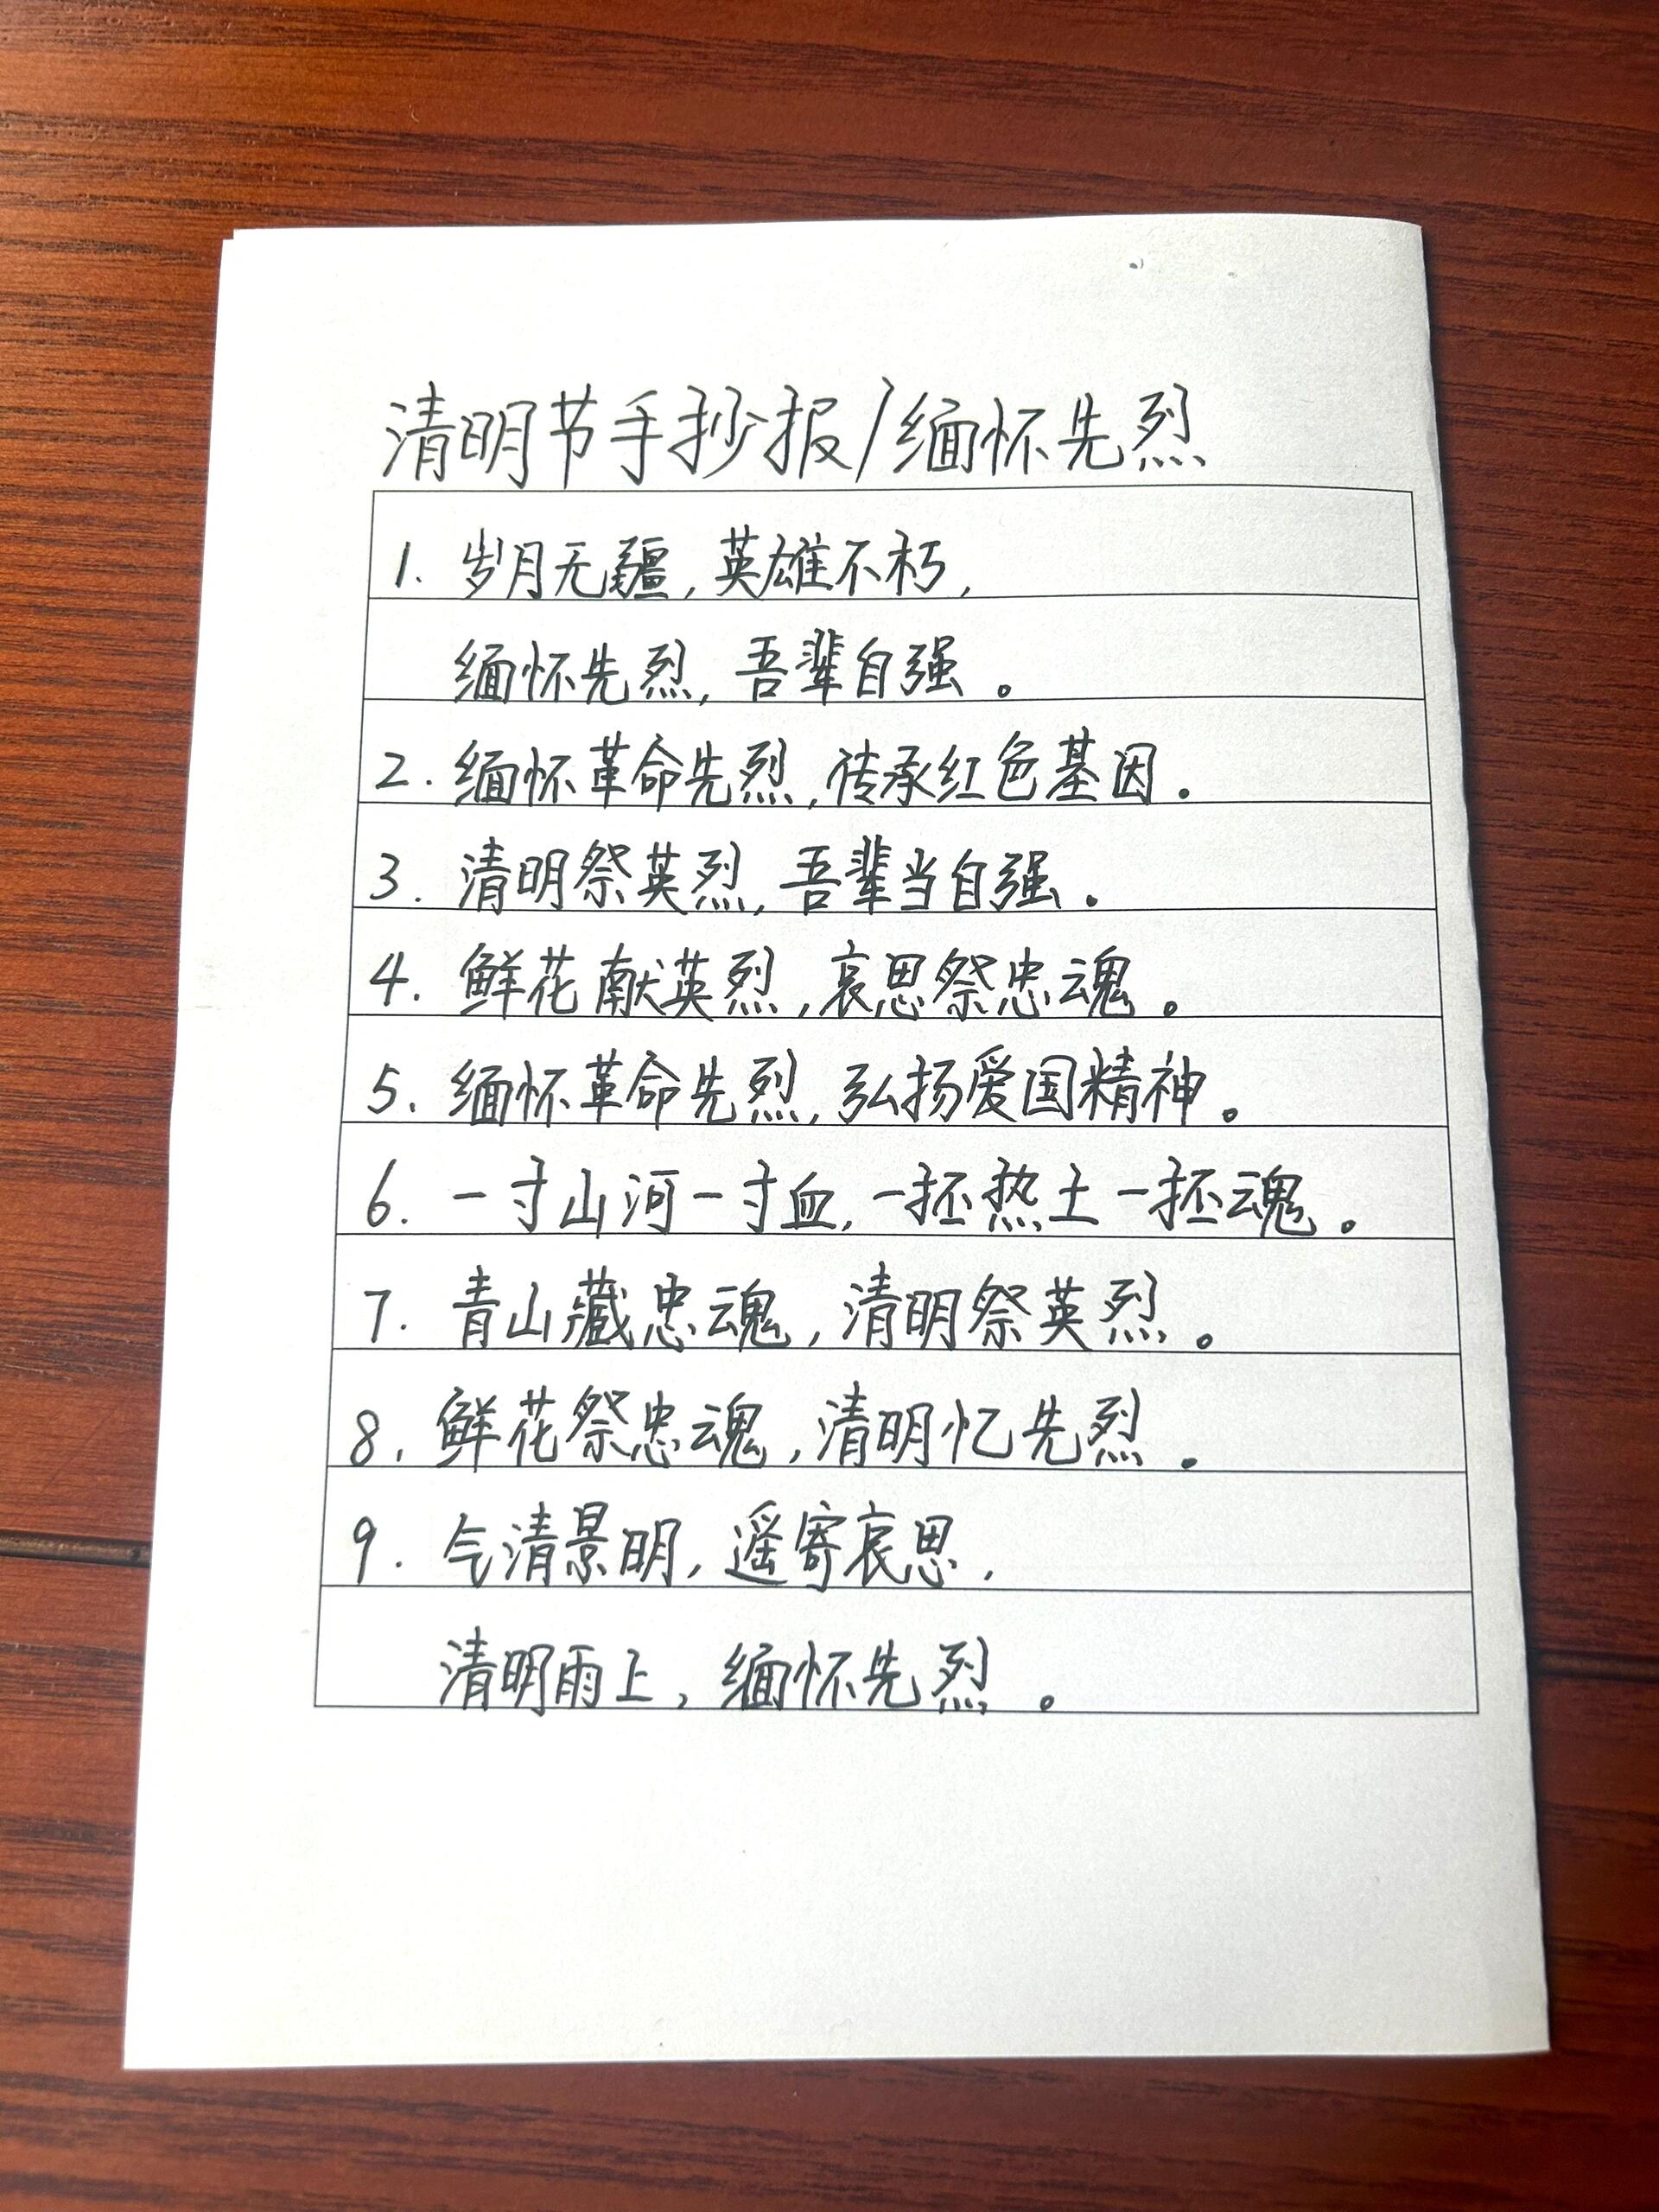 清明节手抄报/缅怀先烈
1. 岁月无疆,英雄不朽,
缅怀先烈,吾辈自强。
2. 缅怀革命先烈,传承红色基因。
3. 清明祭英烈,吾辈当自强。
4. 鲜花献英烈,哀思祭忠魂。
5. 缅怀革命先烈,弘扬爱国精神。
6. 一寸山河一寸血,一抔热土一抔魂。
7. 青山藏忠魂,清明祭英烈。
8. 鲜花祭忠魂,清明忆先烈。
9. 气清景明,遥寄哀思,
清明雨上,缅怀先烈。